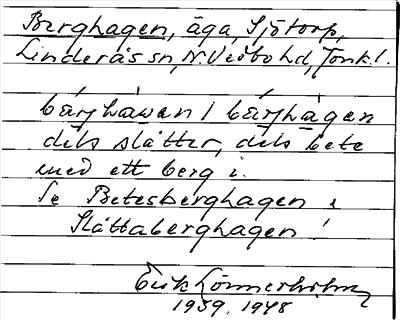 Berghagen, äga, Sjötorp,
Linderås sn, N. Vedbo hd, Jönk. l.
bärjhawen / bärjhagen
dels slåtter, dels bete
med ett berg i.
Se Betesberghagen,
Slåttaberghagen!
Erik Lönnerholm
1939, 1948